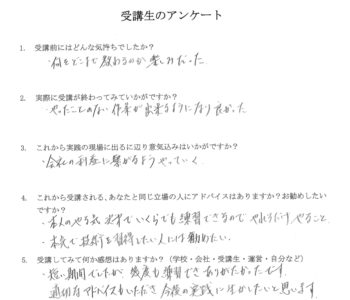 受講生のアンケート
1. 受講前にはどんな気持ちでしたか?
・何をどこまで教わるのか楽しみだった
2. 実際に受講が終わってみていかがですか?
・やったことのない作業が出来るようになり良かった
3. これから実践の現場に出るに辺り意気込みはいかがですか?
・会社の利益に繋がるようやっていく。
4. これから受講される、あなたと同じ立場の人にアドバイスはありますか?お勧めしたい
ですか?
・本人のやる気次第でいくらでも練習できるので やれるだけやること
・本気で技術を習得したい人には勧めたい。
5. 受講してみて何か感想はありますか?(学校・会社・受講生・運営・自分など)
・短い期間でしたが、何度も練習でき ありがたかったです。
適切なアドバイスもいただき 今後の実践に生かしたいと思います